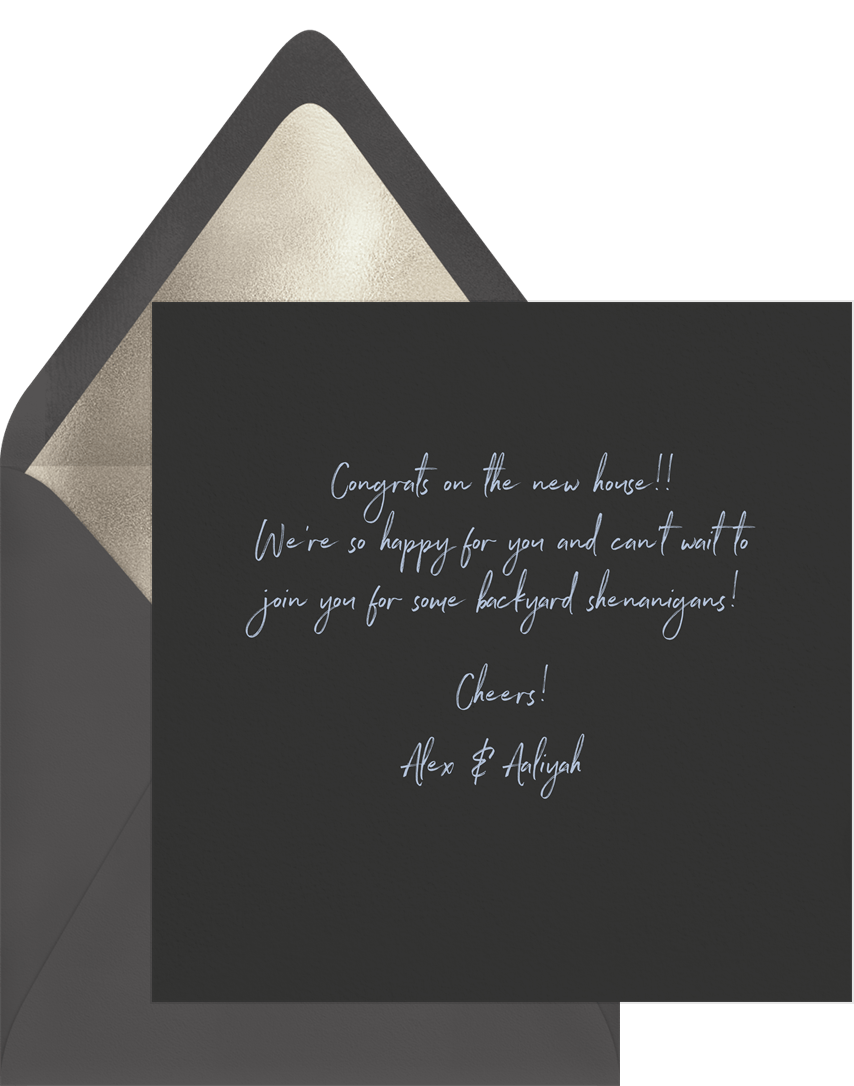 Congrats on the new house!!
We're so happy for you and can't wait to
join you for some backyard shenanigans!
Cheers!
Alex & Aaliyah